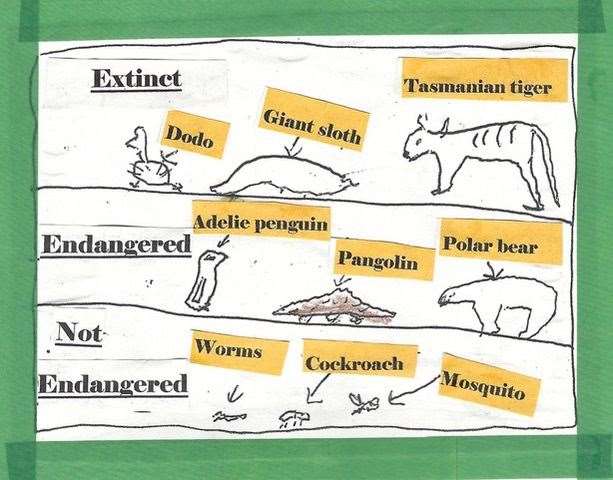 Extinct
Tasmanian tiger
Dodo
Giant sloth
Endangered
Adelie penguin
Pangolin
Polar bear
Not
Endangered
Worms
Cockroach
Mosquito